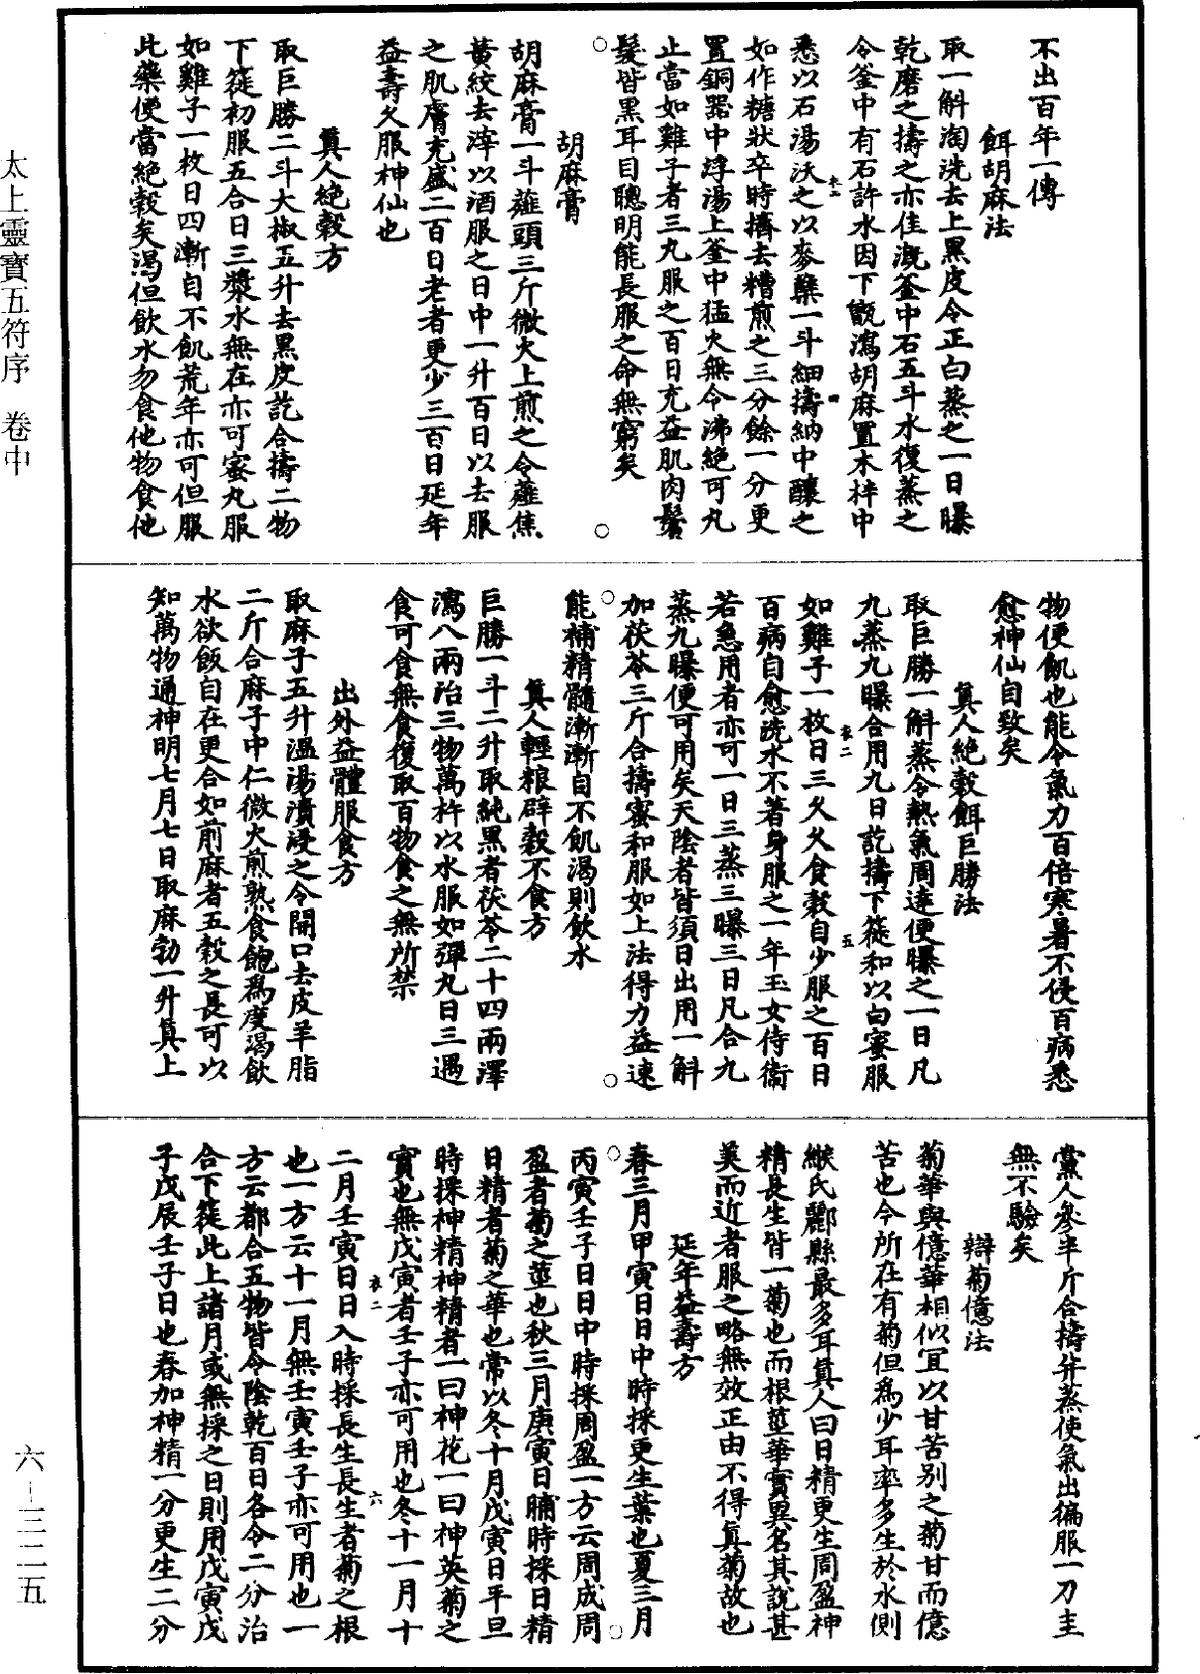 不出百年一傳
餌胡麻法
取一斛淘洗去上黑皮令正白蒸之一日曝
乾磨之擣之亦佳溉釜中石五斗水復蒸之
令釜中有石許水因下甑瀉胡麻置木拌中
悉以石湯沃之以麥櫱一斗細擣納中釀之
如作糖狀卒時擠去糟煎之三分餘一分更
置銅器中浮湯上釜中猛火無令沸絕可丸
止當如雞子者三丸服之百日充益肌肉鬢
髮皆黑耳目聰明能長服之命無窮矣
胡麻膏
胡麻膏一斗薤頭三斤微火上煎之令薤焦
黃絞去滓以酒服之日中一升百日以去服
之肌膚充盛二百日老者更少三百日延年
益壽久服神仙也
真人絕穀方
取巨勝二斗大椒五升去黑皮訖合擣二物
下篩初服五合日三漿水無在亦可蜜丸服
如雞子一枚日四漸自不飢荒年亦可但服
此藥便當絕穀矣渴但飲水勿食他物食他
物便飢也能令氣力百倍寒暑不侵百病悉
愈神仙自致矣
真人絕穀餌巨勝法
取巨勝一斛蒸令熱氣周達便曝之一日凡
九蒸九曝合用九日訖擣下篩和以白蜜服
如雞子一枚日三久久食穀自少服之百日
百病自愈洗水不著身服之一年玉女侍衛
若急用者亦可一日三蒸三曝三日凡合九
蒸九曝便可用矣天陰者皆須日出用一斛
加茯苓三斤合擣蜜和服如上法得力益速
能補精髓漸漸自不飢渴則飲水
真人輕粮辟穀不食方
巨勝一斗二升取純黑者茯苓二十四兩澤
瀉八兩治三物萬杵以水服如彈丸日三遇
食可食無食復取百物食之無所禁
出外益體服食方
取麻子五升溫湯漬浸之令開口去皮羊脂
二斤合麻子中仁微火煎熟食飽為度渴飲
水欲飯自在更合如前麻者五穀之長可以
知萬物通神明七月七日取麻勃一升真上
黨人參半斤合擣并蒸使氣出徧服一刀圭
無不驗矣
辯菊薏法
菊華與薏華相似宜以甘苦別之菊甘而薏
苦也今所在有菊但為少耳率多生於水側
緱氏酈縣最多耳真人曰日精更生周盈神
精長生皆一菊也而根莖華實異名其說甚
美而近者服之略無效正由不得真菊故也
延年益壽方
春三月甲寅日日中時採更生葉也夏三月
丙寅壬子日日中時採周盈一方云周成周
盈者菊之莖也秋三月庚寅日晡時採日精
日精者菊之華也常以冬十月戊寅日平旦
時採神精神精者一曰神花一曰神英菊之
實也無戊寅者壬子亦可用也冬十一月十
二月壬寅日日入時採長生長生者菊之根
也一方云十一月無壬寅壬子亦可用也一
方云都合五物皆令陰乾百日各令二分治
合下篩此上諸月或無採之日則用戊寅戊
子戊辰壬子日也春加神精一分更生二分
太上靈寶五符序 卷中
六—三二五